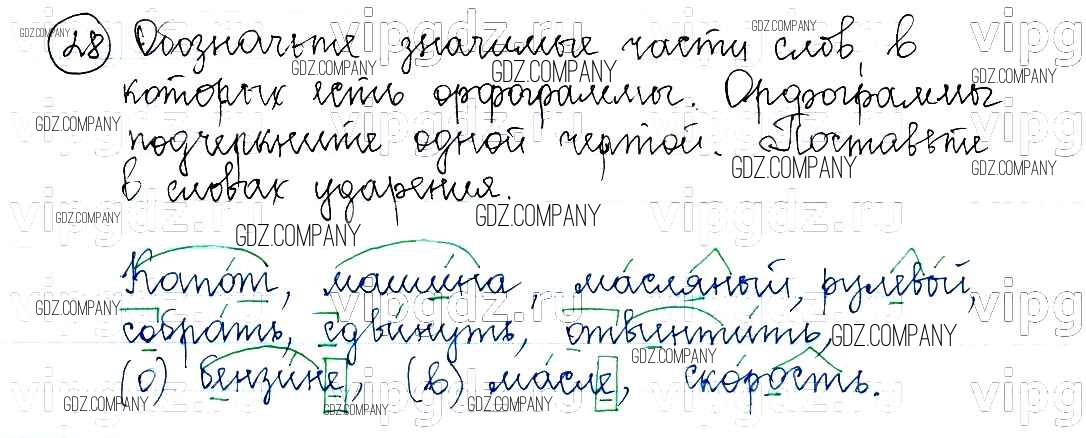 28 Обозначьте значимые части слов, в
которых есть орфограммы. Орфограммы
подчеркните одной чертой. Поставьте
в словах ударения.
Капо́т, маши́на, ма́сляный, рулево́й,
собра́ть, сдви́нуть, отвинти́ть,
(о) бензи́не, (в) ма́сле, ско́рость.